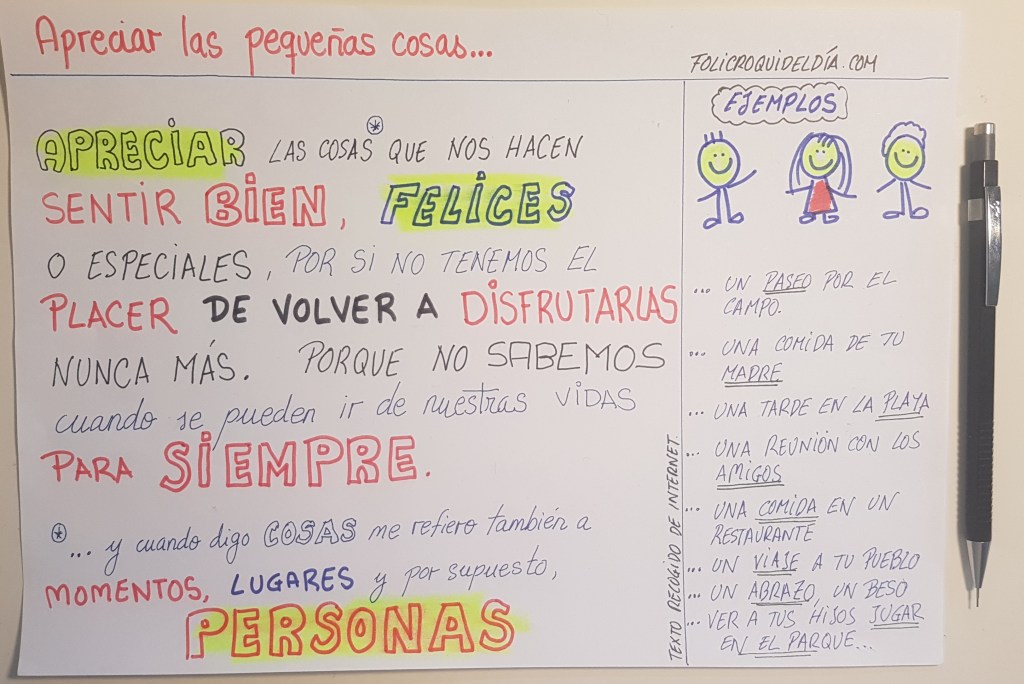 Apreciar las pequeñas cosas...
FOLICROQUIDELDÍA.COM
APRECIAR LAS COSAS* QUE NOS HACEN
SENTIR BIEN, FELICES
O ESPECIALES, POR SI NO TENEMOS EL
PLACER DE VOLVER A DISFRUTARLAS
NUNCA MÁS. PORQUE NO SABEMOS
cuando se pueden ir de nuestras VIDAS
PARA SIEMPRE.
* ... y cuando digo COSAS me refiero también a
MOMENTOS, LUGARES y por supuesto,
PERSONAS
TEXTO RECOGIDO DE INTERNET.
EJEMPLOS
... UN PASEO POR EL
CAMPO.
... UNA COMIDA DE TU
MADRE
... UNA TARDE EN LA PLAYA
... UNA REUNIÓN CON LOS
AMIGOS
... UNA COMIDA EN UN
RESTAURANTE
... UN VIAJE A TU PUEBLO
... UN ABRAZO, UN BESO
... VER A TUS HIJOS JUGAR
EN EL PARQUE...